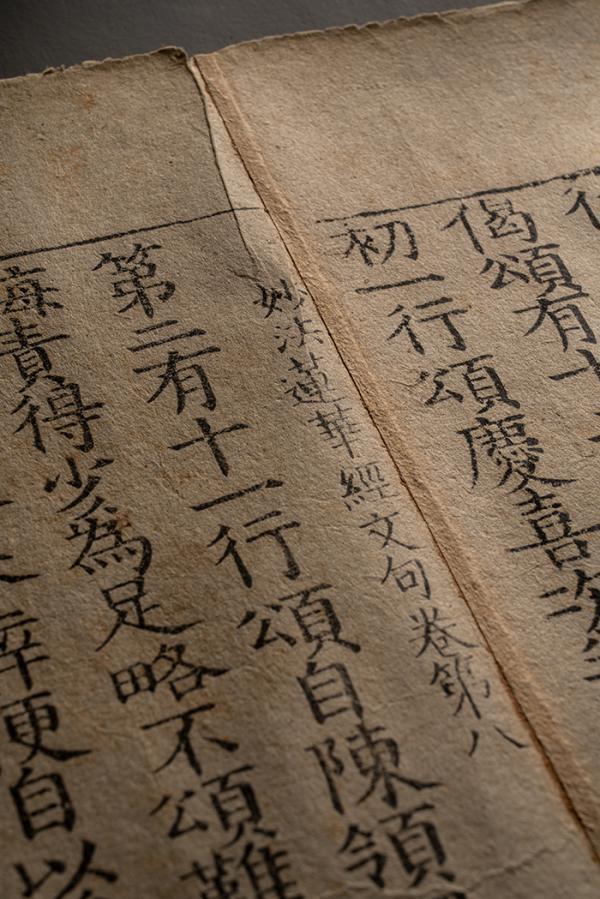 偈頌有十
初一行頌慶喜次
妙法蓮華經文句卷第八
第二有十一行頌自陳領
悔責得少為足略不頌難
便自